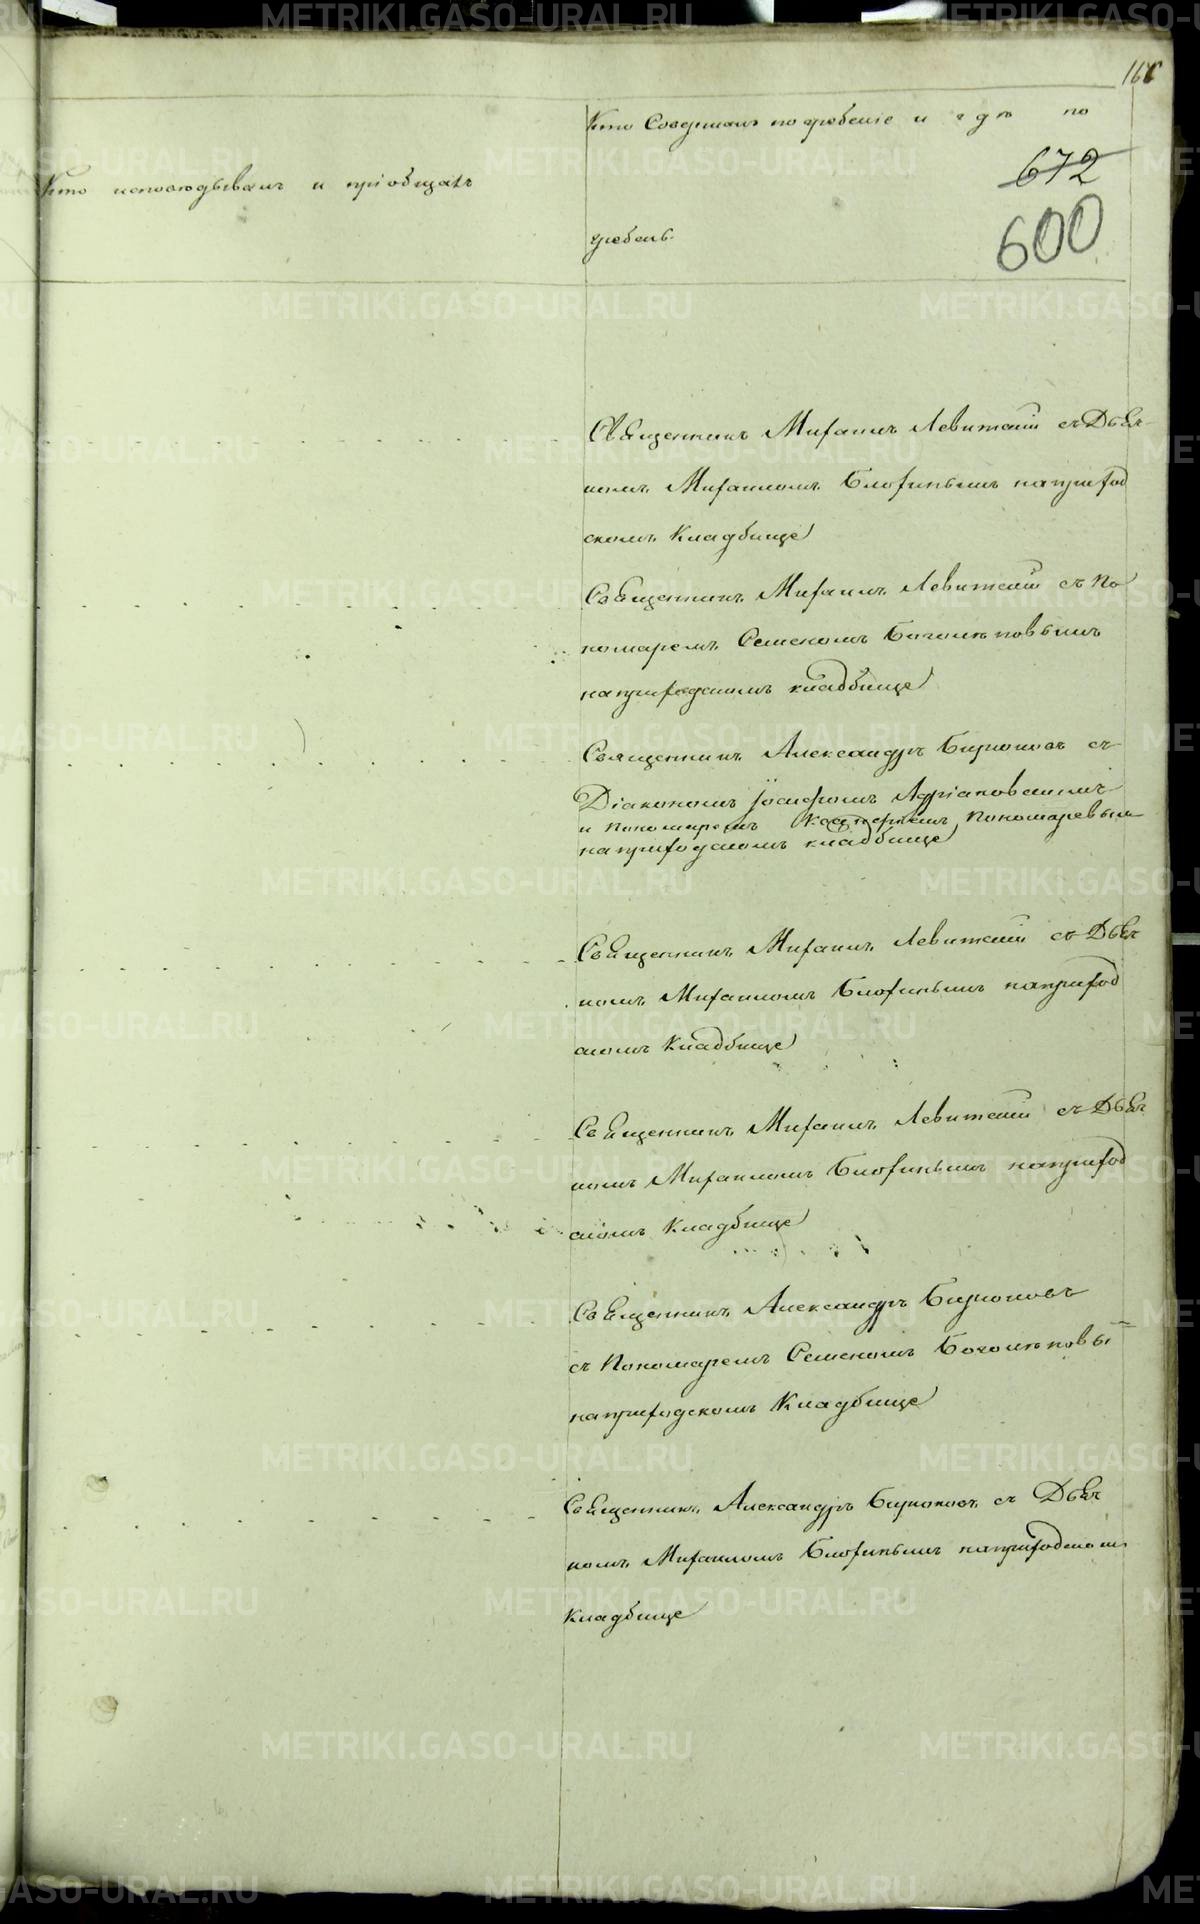 Кто исповѣдывалъ и пріобщалъ
Кто Совершалъ погребеніе и гдѣ по
672
600
гребенъ.
Священникъ Михаилъ Левитскій съ Дьяч-
комъ Михаиломъ Блохинымъ наприход
скомъ Кладбище
Священникъ Михаилъ Левитскій съ По
номаремъ Семеномъ Боголѣповымъ
наприходскомъ кладбище
Священникъ Александръ Бирюковъ съ
Діакономъ Іосифомъ Адріановскимъ
и пономаремъ Пономаревымъ
наприходскомъ кладбище
Священникъ Михаилъ Левитскій съ Дьяч
комъ Михаиломъ Блохинымъ наприход
скомъ Кладбище
Священникъ Михаилъ Левитскій съ Дьяч
комъ Михаиломъ Блохинымъ наприход
скомъ Кладбище
Священникъ Александръ Бирюковъ
съ Пономаремъ Семеномъ Боголѣповы
наприходскомъ Кладбище
Священникъ Александръ Бирюковъ съ Дьяч
комъ Михаиломъ Блохинымъ наприходскомъ
кладбище
METRIKI.GASO-URAL.RU